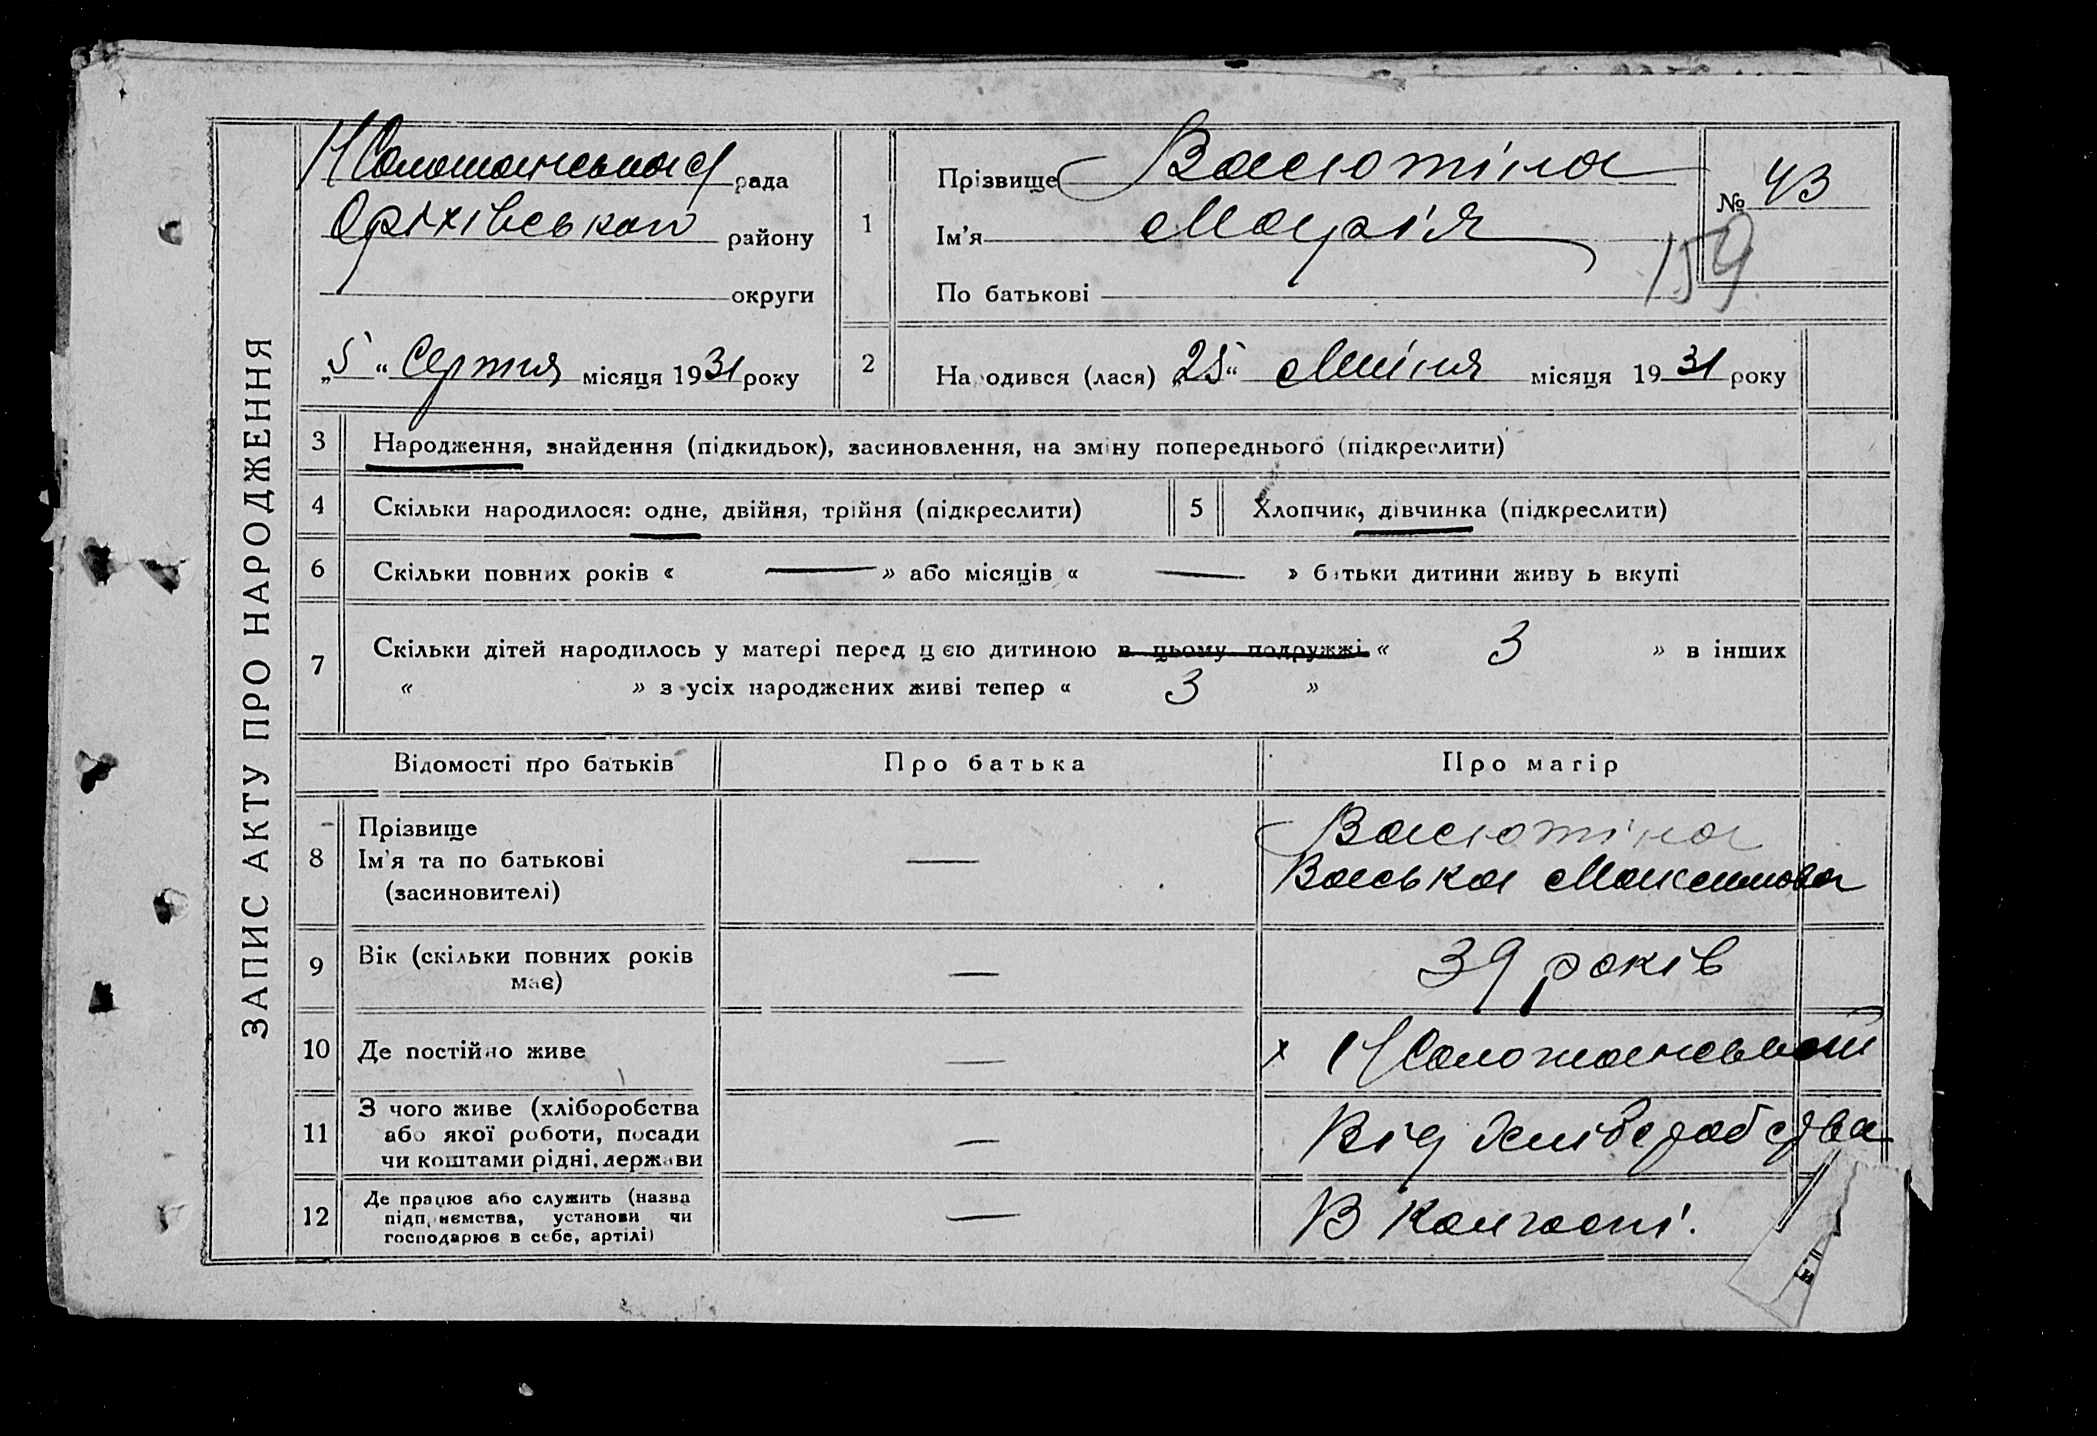 ЗАПИС АКТУ ПРО НАРОДЖЕННЯ
рада
Оріхівськой району
округи
„5“ Серпня місяця 1931 року
1
Прізвище Васютіна
Ім'я Марія
По батькові
№ 43
159
2
Народився (лася) „25“ Липня місяця 1931 року
3 Народження, знайдення (підкидьок), засиновлення, на зміну попереднього (підкреслити)
4 Скільки народилося: одне, двійня, трійня (підкреслити)
5 Хлопчик, дівчинка (підкреслити)
6 Скільки повних років « — » або місяців « — » батьки дитини живу ь вкупі
7 Скільки дітей народилось у матері перед цєю дитиною в цьому подружжі « 3 » в інших
« » з усіх народжених живі тепер « 3 »
Відомості про батьків Про батька Про матір
8 Прізвище
Ім'я та по батькові
(засиновителі)
—
Васютіна
Васька Максимова
9 Вік (скільки повних років
має)
—
39 років
10 Де постійно живе
—
х
11 З чого живе (хліборобства
або якої роботи, посади
чи коштами рідні, держави
—
Від хліборобства
12 Де працює або служить (назва
підприємства, установи чи
господарює в себе, артілі)
—
В колгоспі.